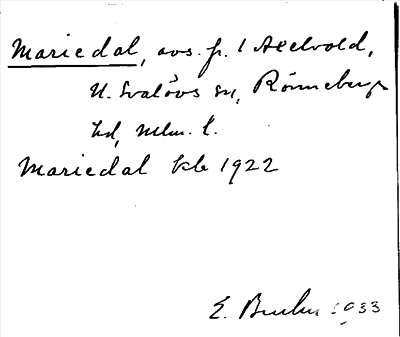 Mariedal, avs. fr. 1 Axelvold,
N. Svalövs sn, Rönnebergs
hd, Mlm. l.
Mariedal kb 1922
E. 1933